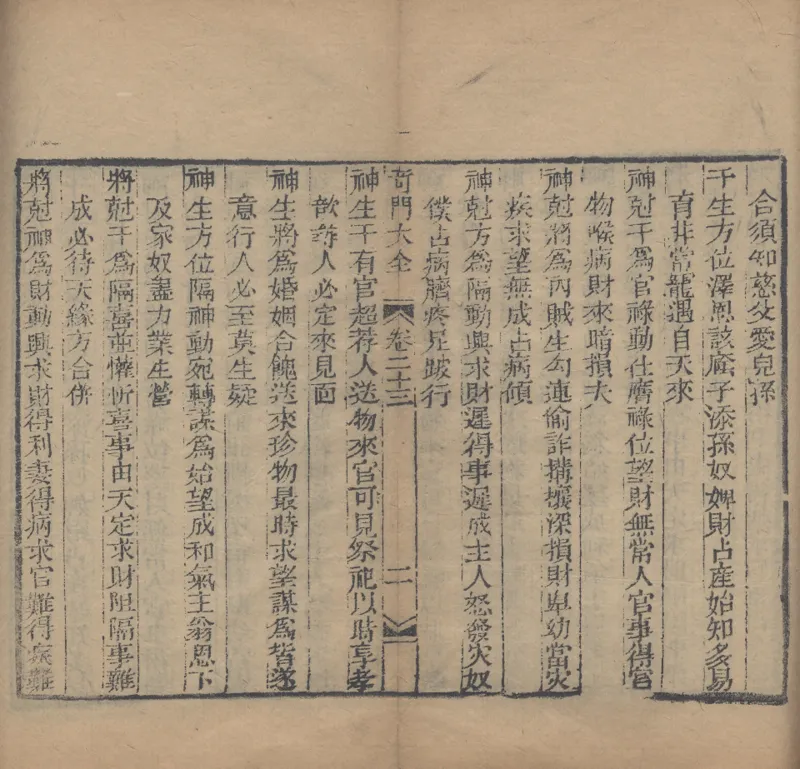 合須知慈父愛皃孫
干生方位澤恩該蔭子添孫奴婢財占産始知多易
育非常寵遇自天來
神尅干為官祿動仕膺祿位望財無常人官事得官
物喉病財來暗損夫
神尅將為丙賊生勾連偷詐搆壞深損財卑幼當灾
疾求望無成占病傾
神尅方為隔動興求財遲得事遲成主人怒發灾奴
僕占病臍疼足跛行
奇門大全 卷二十三 二
神生干有官超荐人送物來官可見祭祀以時享孝
歆 人必定來見面
神生將為婚姻合餽送來珍物最時求望謀為皆遂
意行人必至莫生疑
神生方位隔神動宛轉謀為始望成和氣主翁恩下
及家奴盡力業生營
將尅干為隔喜 懶忻喜事由天定求財阻隔事難
成必待天緣方合併
將尅神為財動興求財得利妻得病求官難得疾難